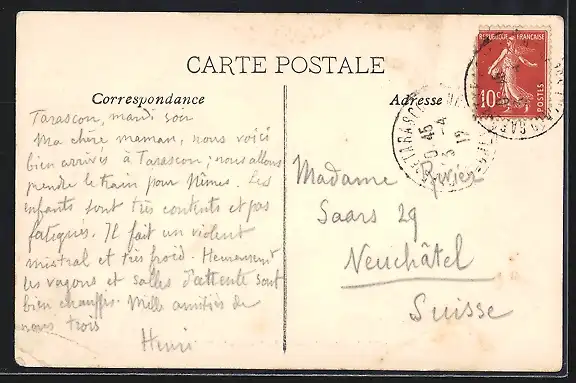 CARTE POSTALE
Correspondance
Adresse
REPUBLIQUE FRANÇAISE
10c
POSTES
TARASCON
0 45
3 -4
12
Tarascon, mardi soir
Ma chère maman, nous voici
bien arrivés à Tarascon; nous allons
prendre le train pour Nîmes. Les
enfants sont très contents et pas
fatigués. Il fait un violent
mistral et très froid. Heureusement
les wagons et salles d'attente sont
bien chauffés. Mille amitiés de
nous trois
Henri
Madame Rivier
Saars 29
Neuchâtel
Suisse